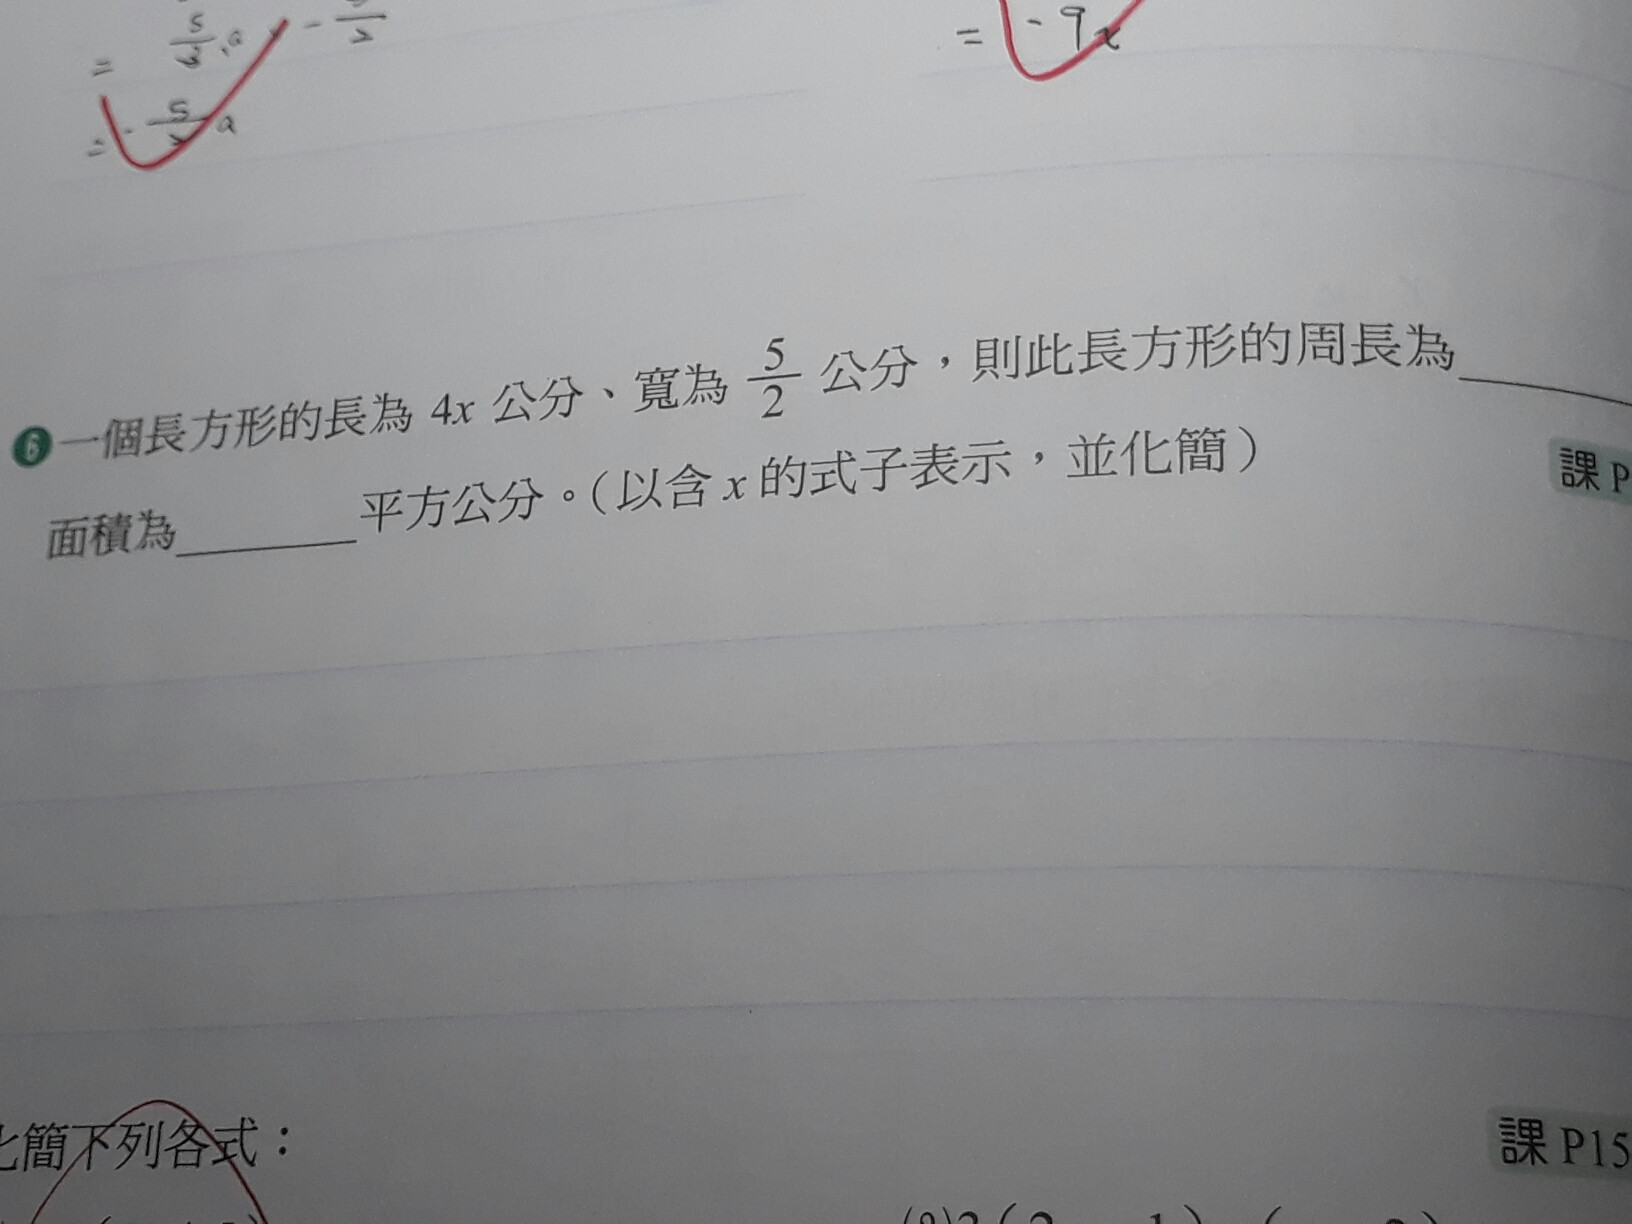 = 5/2 a × - 5/2
= - 5/2 a
= - 9x
6 一個長方形的長為 4x 公分、寬為 5/2 公分，則此長方形的周長為______
課 P
面積為______平方公分。（以含 x 的式子表示，並化簡）
化簡下列各式：
課 P15